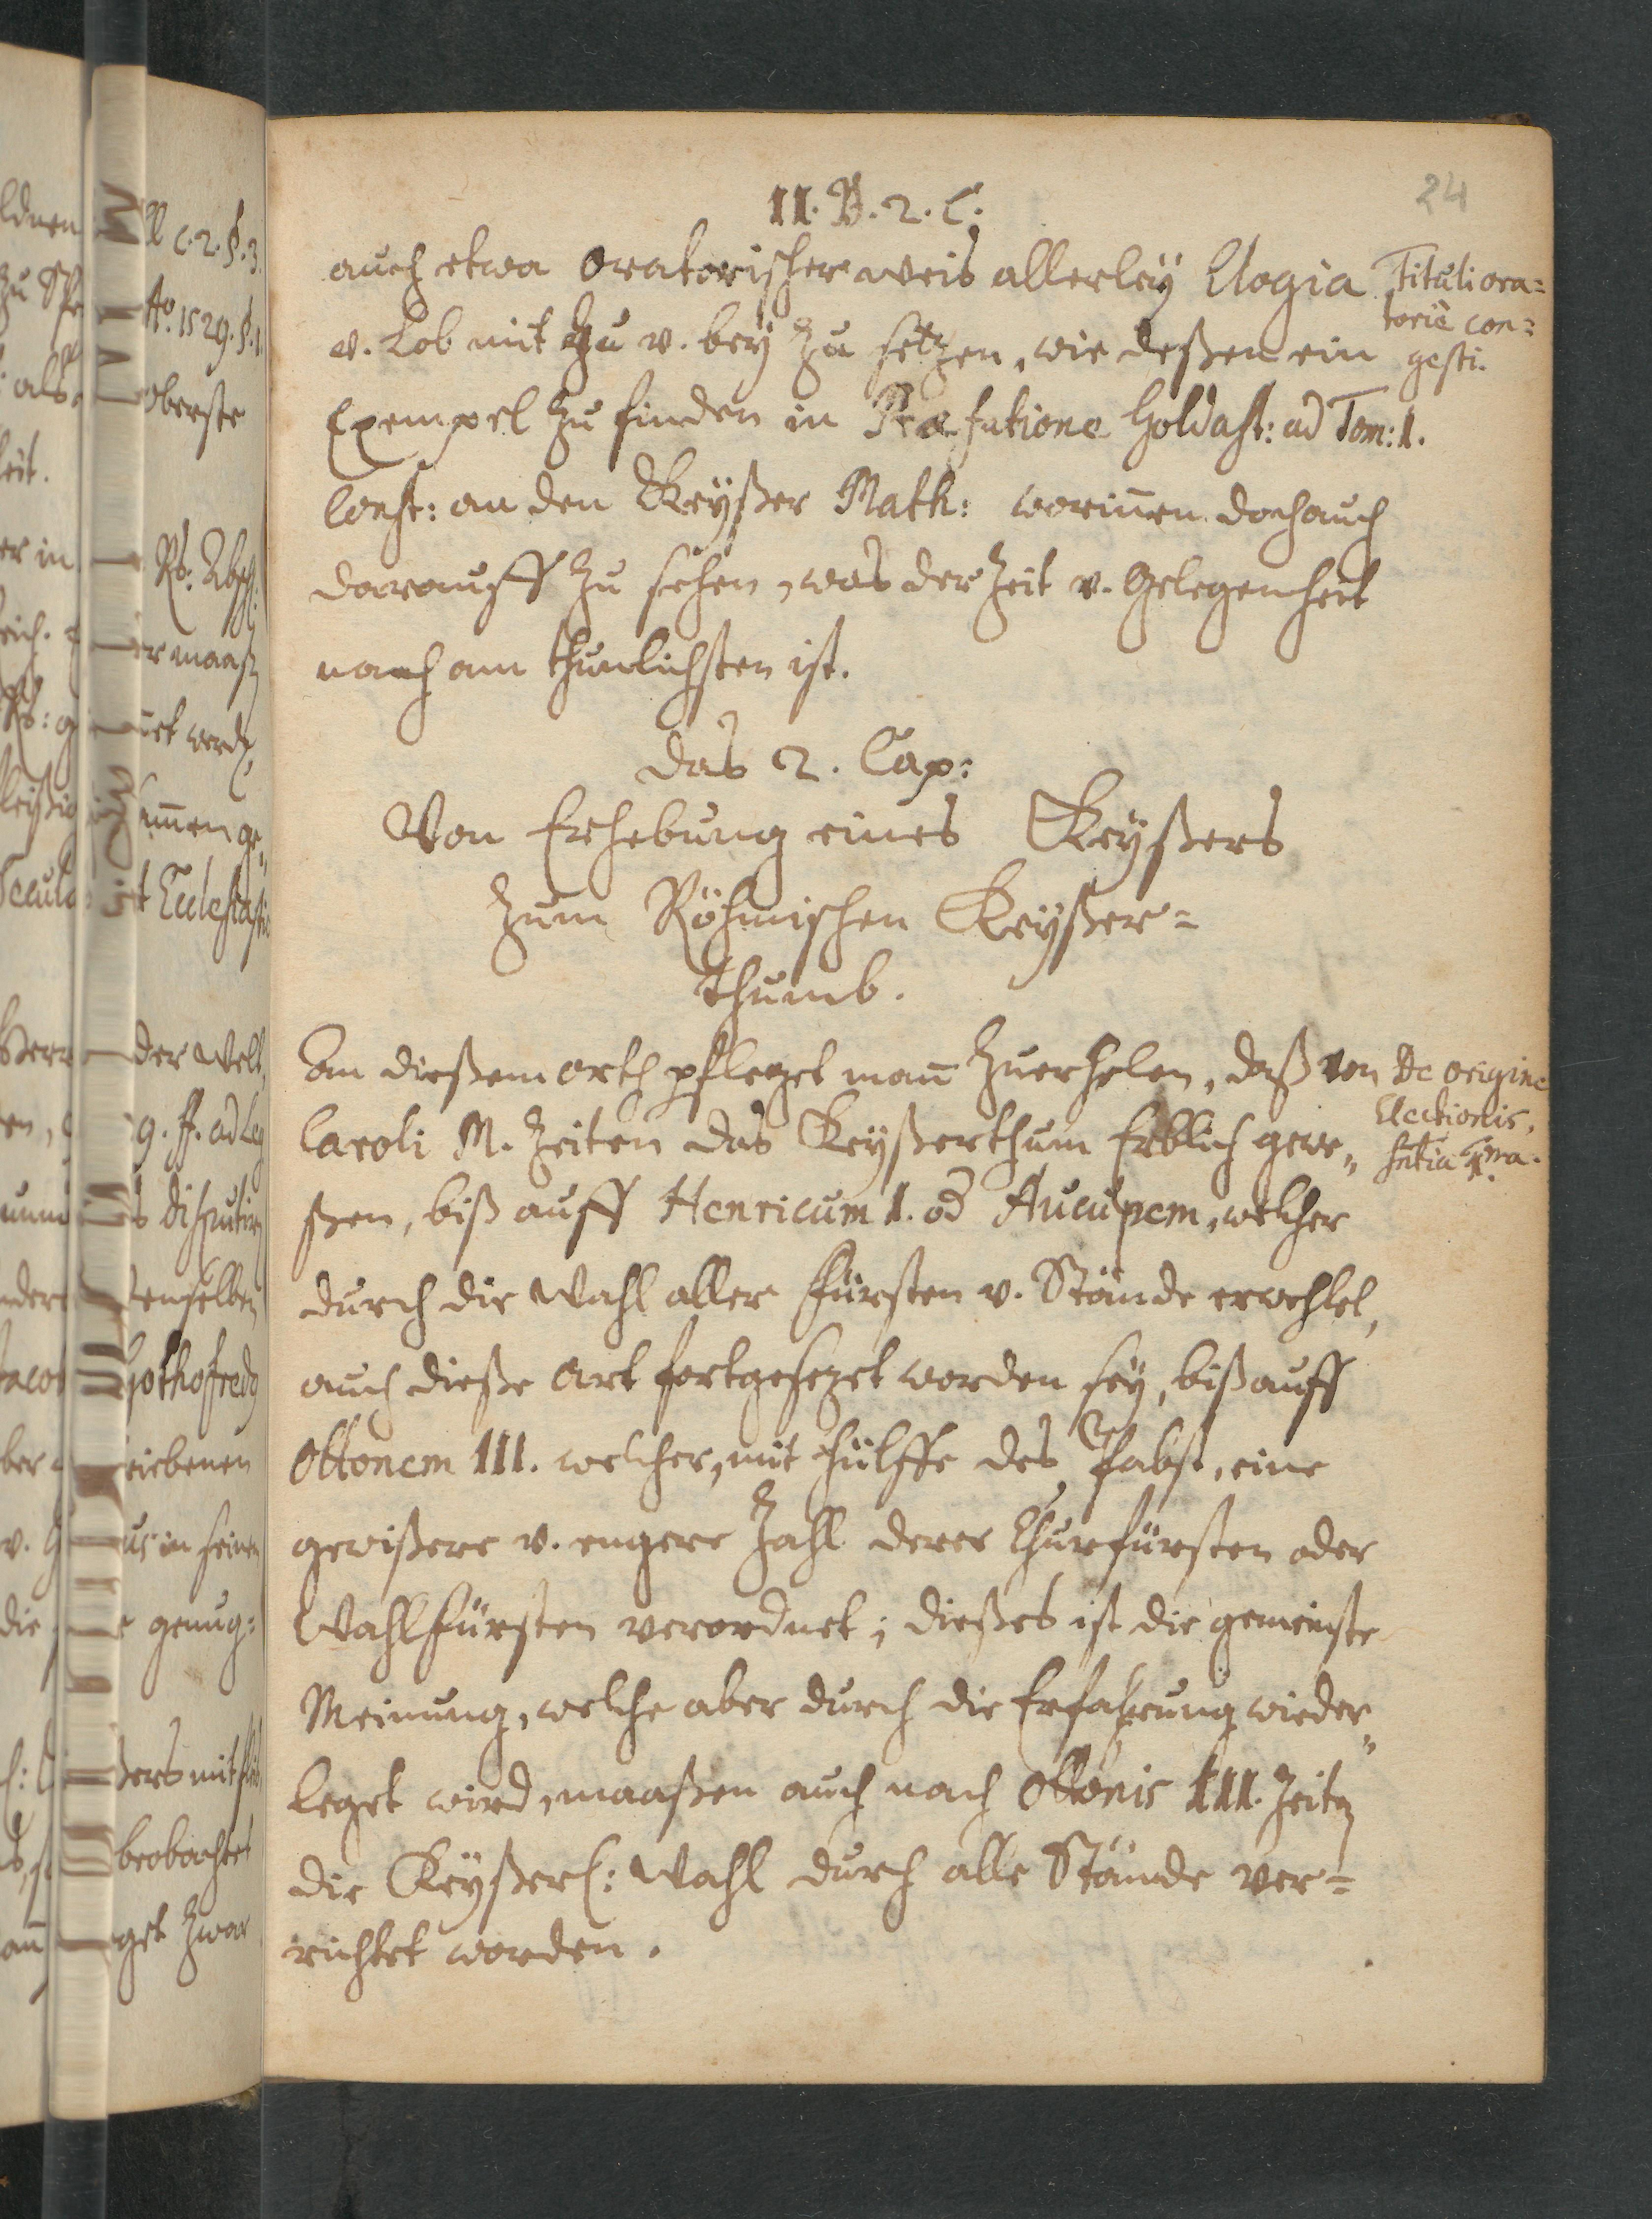 24
II. B. 2. C.
auch etwa oratorischer weis allerleÿ Elogia
v. Lob mit zu v. beÿ zu setzen, wie deßen ein
Exempel zu finden in Præfatione Goldast: ad Tom: 1.
Const: an den Keÿßer Math: worin̄en doch auch
darauff zu sehen, was der Zeit v. Gelegenheit
nach am thunlichsten ist.
Tituli ora=
toriè con=
gesti.
Das 2. Cap:
Von Erhebung eines Keÿßers
zum Röhmischen Keÿßer=
thumb.
An dießem orth pfleget man̄ zuerholen, daß von
Caroli M. Zeiten das Keÿßerthum Erblich gewe„
ßen, biß auff Henricum 1. od Aucupem, welcher
durch die Wahl aller Fürsten v. Stände erwehlet,
auch dieße Art fortgesezet worden seÿ, biß auff
Ottonem III. welcher, mit hülffe des Pabst, eine
gewißere v. engere Zahl derer Churfürsten oder
Wahlfürsten verordnet; dießes ist die gemeinste
Meinung, welche aber durch die Erfahrung wieder„
leget wird, maaßen auch nach Ottonis III. Zeiten
die Keÿßerl: Wahl durch alle Stände ver=
richtet worden.
De origine
Electionis,
sntia
ll C. 2. §. 3.
Ao. 1529. §. 1.
Oberste
Rs: Absch:
maaß
der Welt,
beobachtet
Zwar